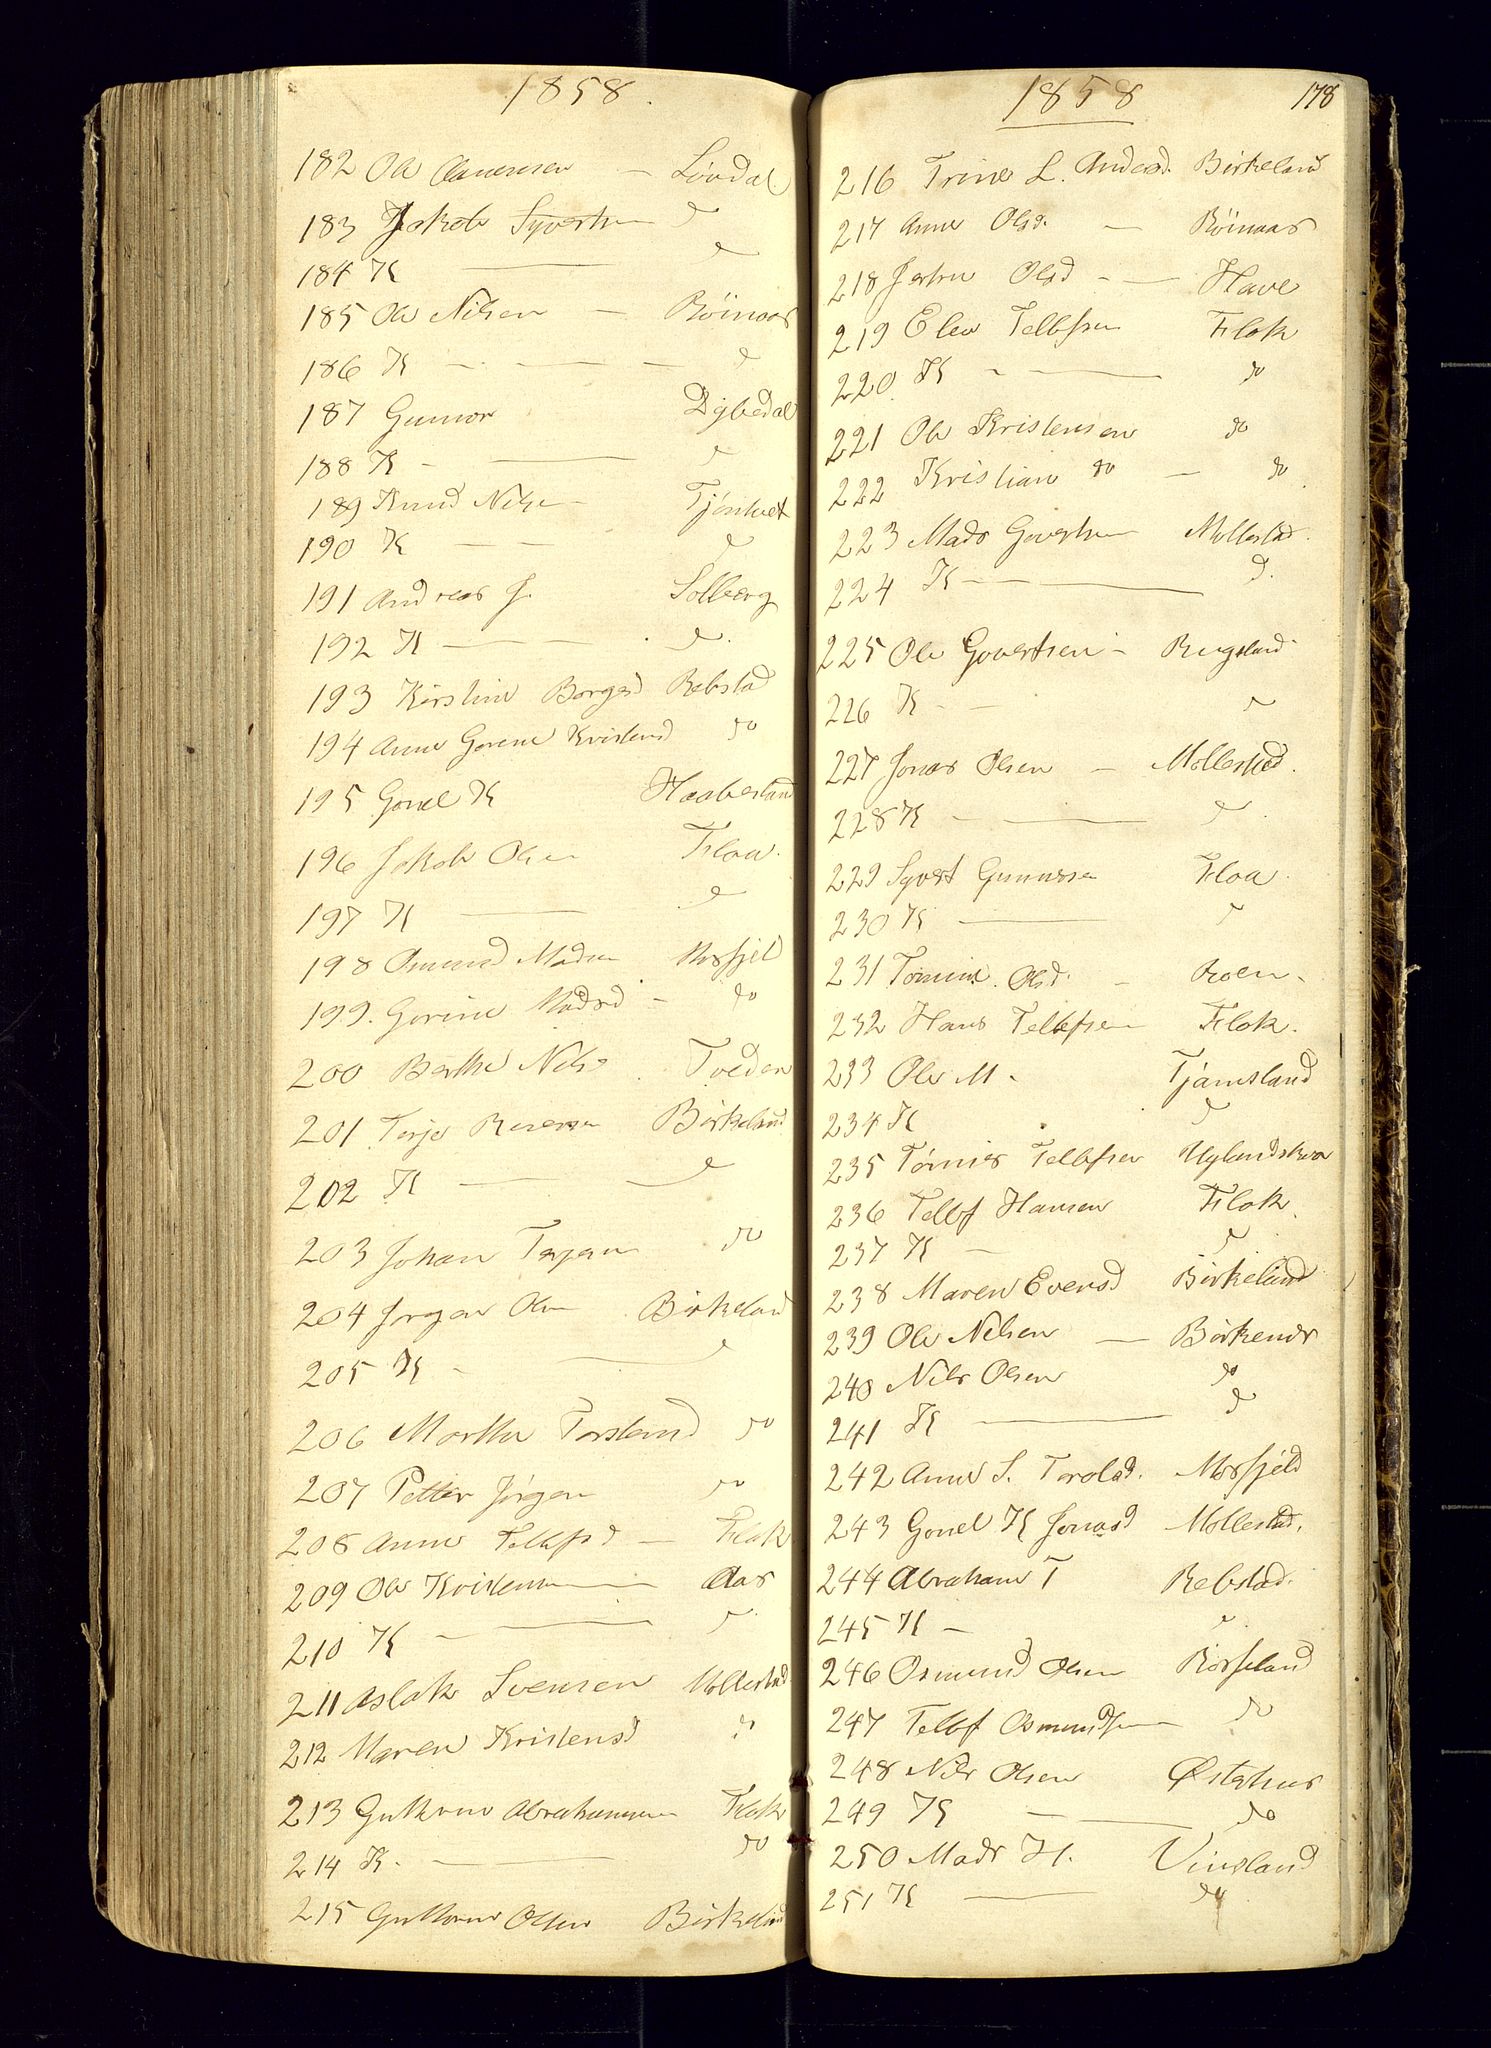 1858.
182 Ole Clemensen — Løvdal
183 Jakob Syvertsen d
184 K — d
185 Ole Nilsen — Röinaas
186 K - — - d
187 Gunnor Dybedal
188 K - — d
189 Knud Nilsen - Tjöntvet
190 K - — d
191 Andreas J. Solberg
192 K - — d.
193 Kirstine Borgesd Rebstad
194 Anne Gorene Kristensd do
195 Gonel K Haabesland
196 Jakob Olsen Floa.
197 K — d
198 Osmund Madsen Mosfjeld
199. Gorine Madsd - do
200 Berthe Nils Tveden
201 Terje Birkeland
202 K — d
203 Johan Terjesen do
204 Jorgen Olsen Birkeland
205 K - — d
206 Marthe Torsland do
207 Petter Jörgen do
208 Anne Tellefsd — Flak
209 Ole Kristensen — Aas
210 K - — d
211 Aslak Svensen Mollestad
212 Maren Kristensd do
213 Guttorm Abrahamsen Flak
214 K. — do
215 Guttorm Olsen Birkeland
1858 178
216 Trine L. Andersd. Birkeland
217 Anne Olsd. — Röinaas
218 Olsd - — Have
219 Elev Tellefsen Flak
220. K - — do
221 Ole Kristensen do
222 Kristian do — do
223 Mads Govertsen Mollestad.
224 K - — d.
225 Ole Govertsen - Rugsland
226 K - - d
227 Jonas Olsen — Mollestad.
228 K - — d
229 Syvert Gunnersen Floa.
230 K — d
231 Tomine. Olsd. — Roen.
232 Hans Tellefsen Flak.
233 Ole M. Tjamsland
234 K d
235 Tørnies Tellefsen Uglandskvr
236 Tellef Hansen Flak.
237 K — d
238 Maren Evensd Birkeland
239 Ole Nilsen — Birkenes
240 Nils Olsen do
241 K — d
242 Anne S. Torolsd. Mosfjeld
243 Gonel K Jonasd Mollestad.
244 Abraham T Rebstad.
245 K — d
246 Osmund Olsen Rosseland
247 Tellef Osmundsen do
248 Nils Olsen Østerhus
249 K — do
250 Mads H. Vinsland
251 K — do